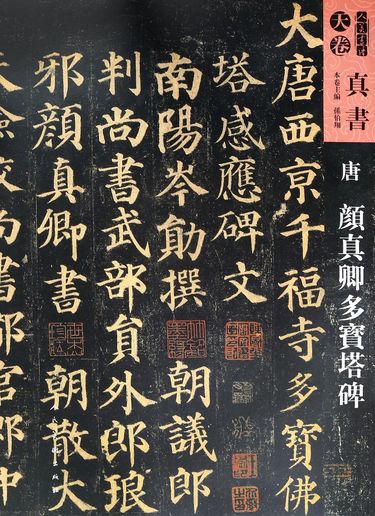 人美書譜
天卷
真書
本卷主編 孫伯翔
唐 顏真卿多寶塔碑
大唐西京千福寺多寶佛
塔感應碑文
南陽岑勛撰 朝議郎
判尚書武部員外郎琅
邪顏真卿書 朝散大
夫撿校尚書都官郎中